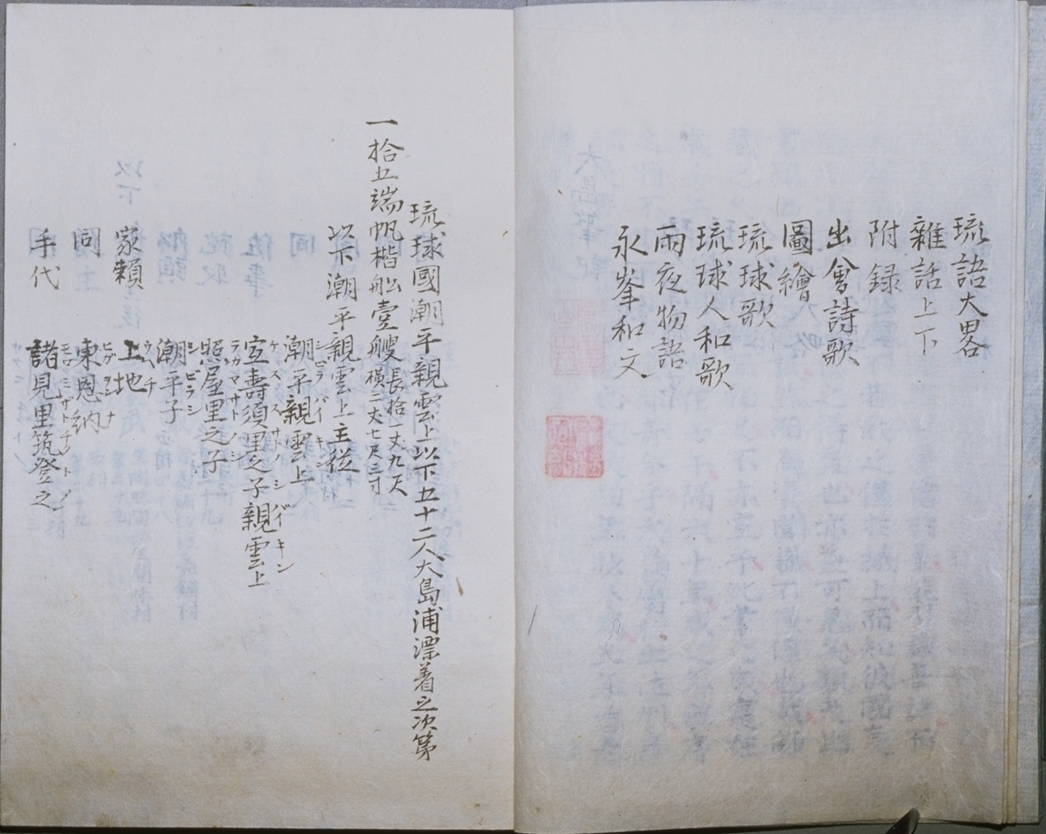 琉語大畧
雜話上下
附録
出會詩歌
圖繪
琉球歌
琉球人和歌
雨夜物語
永峯和文
琉球國潮平親雲上以下五十二人大島浦漂着之次第
一拾五端帆楷舩壹艘 長拾一丈九尺 横二丈七尺三寸
以下潮平親雲上主從
潮平親雲上
宜壽須里之子親雲上
照屋里之子
潮平子
家頼 上地
同 東恩納
手代 諸見里筑登之